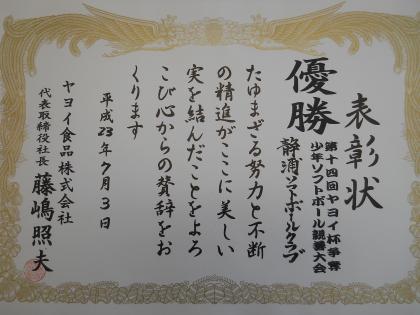 表彰状
第十四回ヤヨイ杯争奪
少年ソフトボール親善大会
優勝
静浦ソフトボールクラブ
たゆまざる努力と不断
の精進がここに美しい
実を結んだことをよろ
こび心からの賛辞をお
くります
平成23年7月3日
ヤヨイ食品株式会社
代表取締役社長 藤嶋照夫